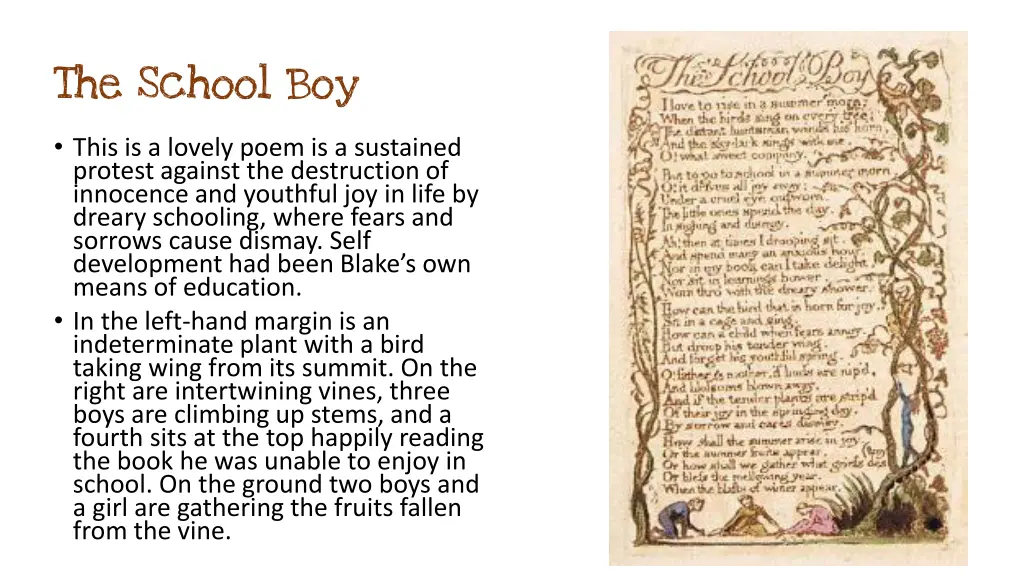 The School Boy
• This is a lovely poem is a sustained
protest against the destruction of
innocence and youthful joy in life by
dreary schooling, where fears and
sorrows cause dismay. Self
development had been Blake’s own
means of education.
• In the left-hand margin is an
indeterminate plant with a bird
taking wing from its summit. On the
right are intertwining vines, three
boys are climbing up stems, and a
fourth sits at the top happily reading
the book he was unable to enjoy in
school. On the ground two boys and
a girl are gathering the fruits fallen
from the vine.
The School Boy
I love to rise in a summer morn,
When the birds sing on every tree;
The distant huntsman winds his horn,
And the sky-lark sings with me.
O! what sweet company.
But to go to school in a summer morn
O! it drives all joy away;
Under a cruel eye outworn.
The little ones spend the day,
In sighing and dismay.
Ah! then at times I drooping sit,
And spend many an anxious hour.
Nor in my book can I take delight,
Nor sit in learnings bower,
Worn thro with the dreary shower.
How can the bird that is born for joy,
Sit in a cage and sing.
How can a child when fears annoy.
But droop his tender wing,
And forget his youthful spring.
O! father & mother, if buds are nip'd,
And blossoms blown away,
And if the tender plants are strip'd
Of their joy in the springing day,
By sorrow and cares dismay,
How shall the summer arise in joy
Or the summer fruits appear,
Or how shall we gather what griefs des
Or bless the mellowing year,
When the blasts of winter appear.